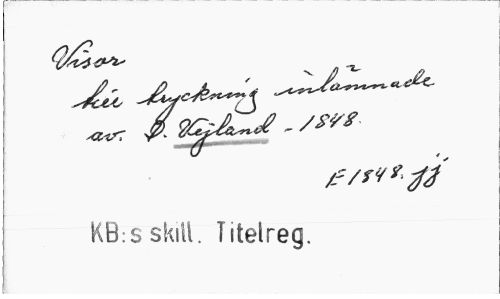 Visor
till tryckning inlämnade
av. D. Vejland - 1848.
E 1848. jj
KB:s skill. Titelreg.